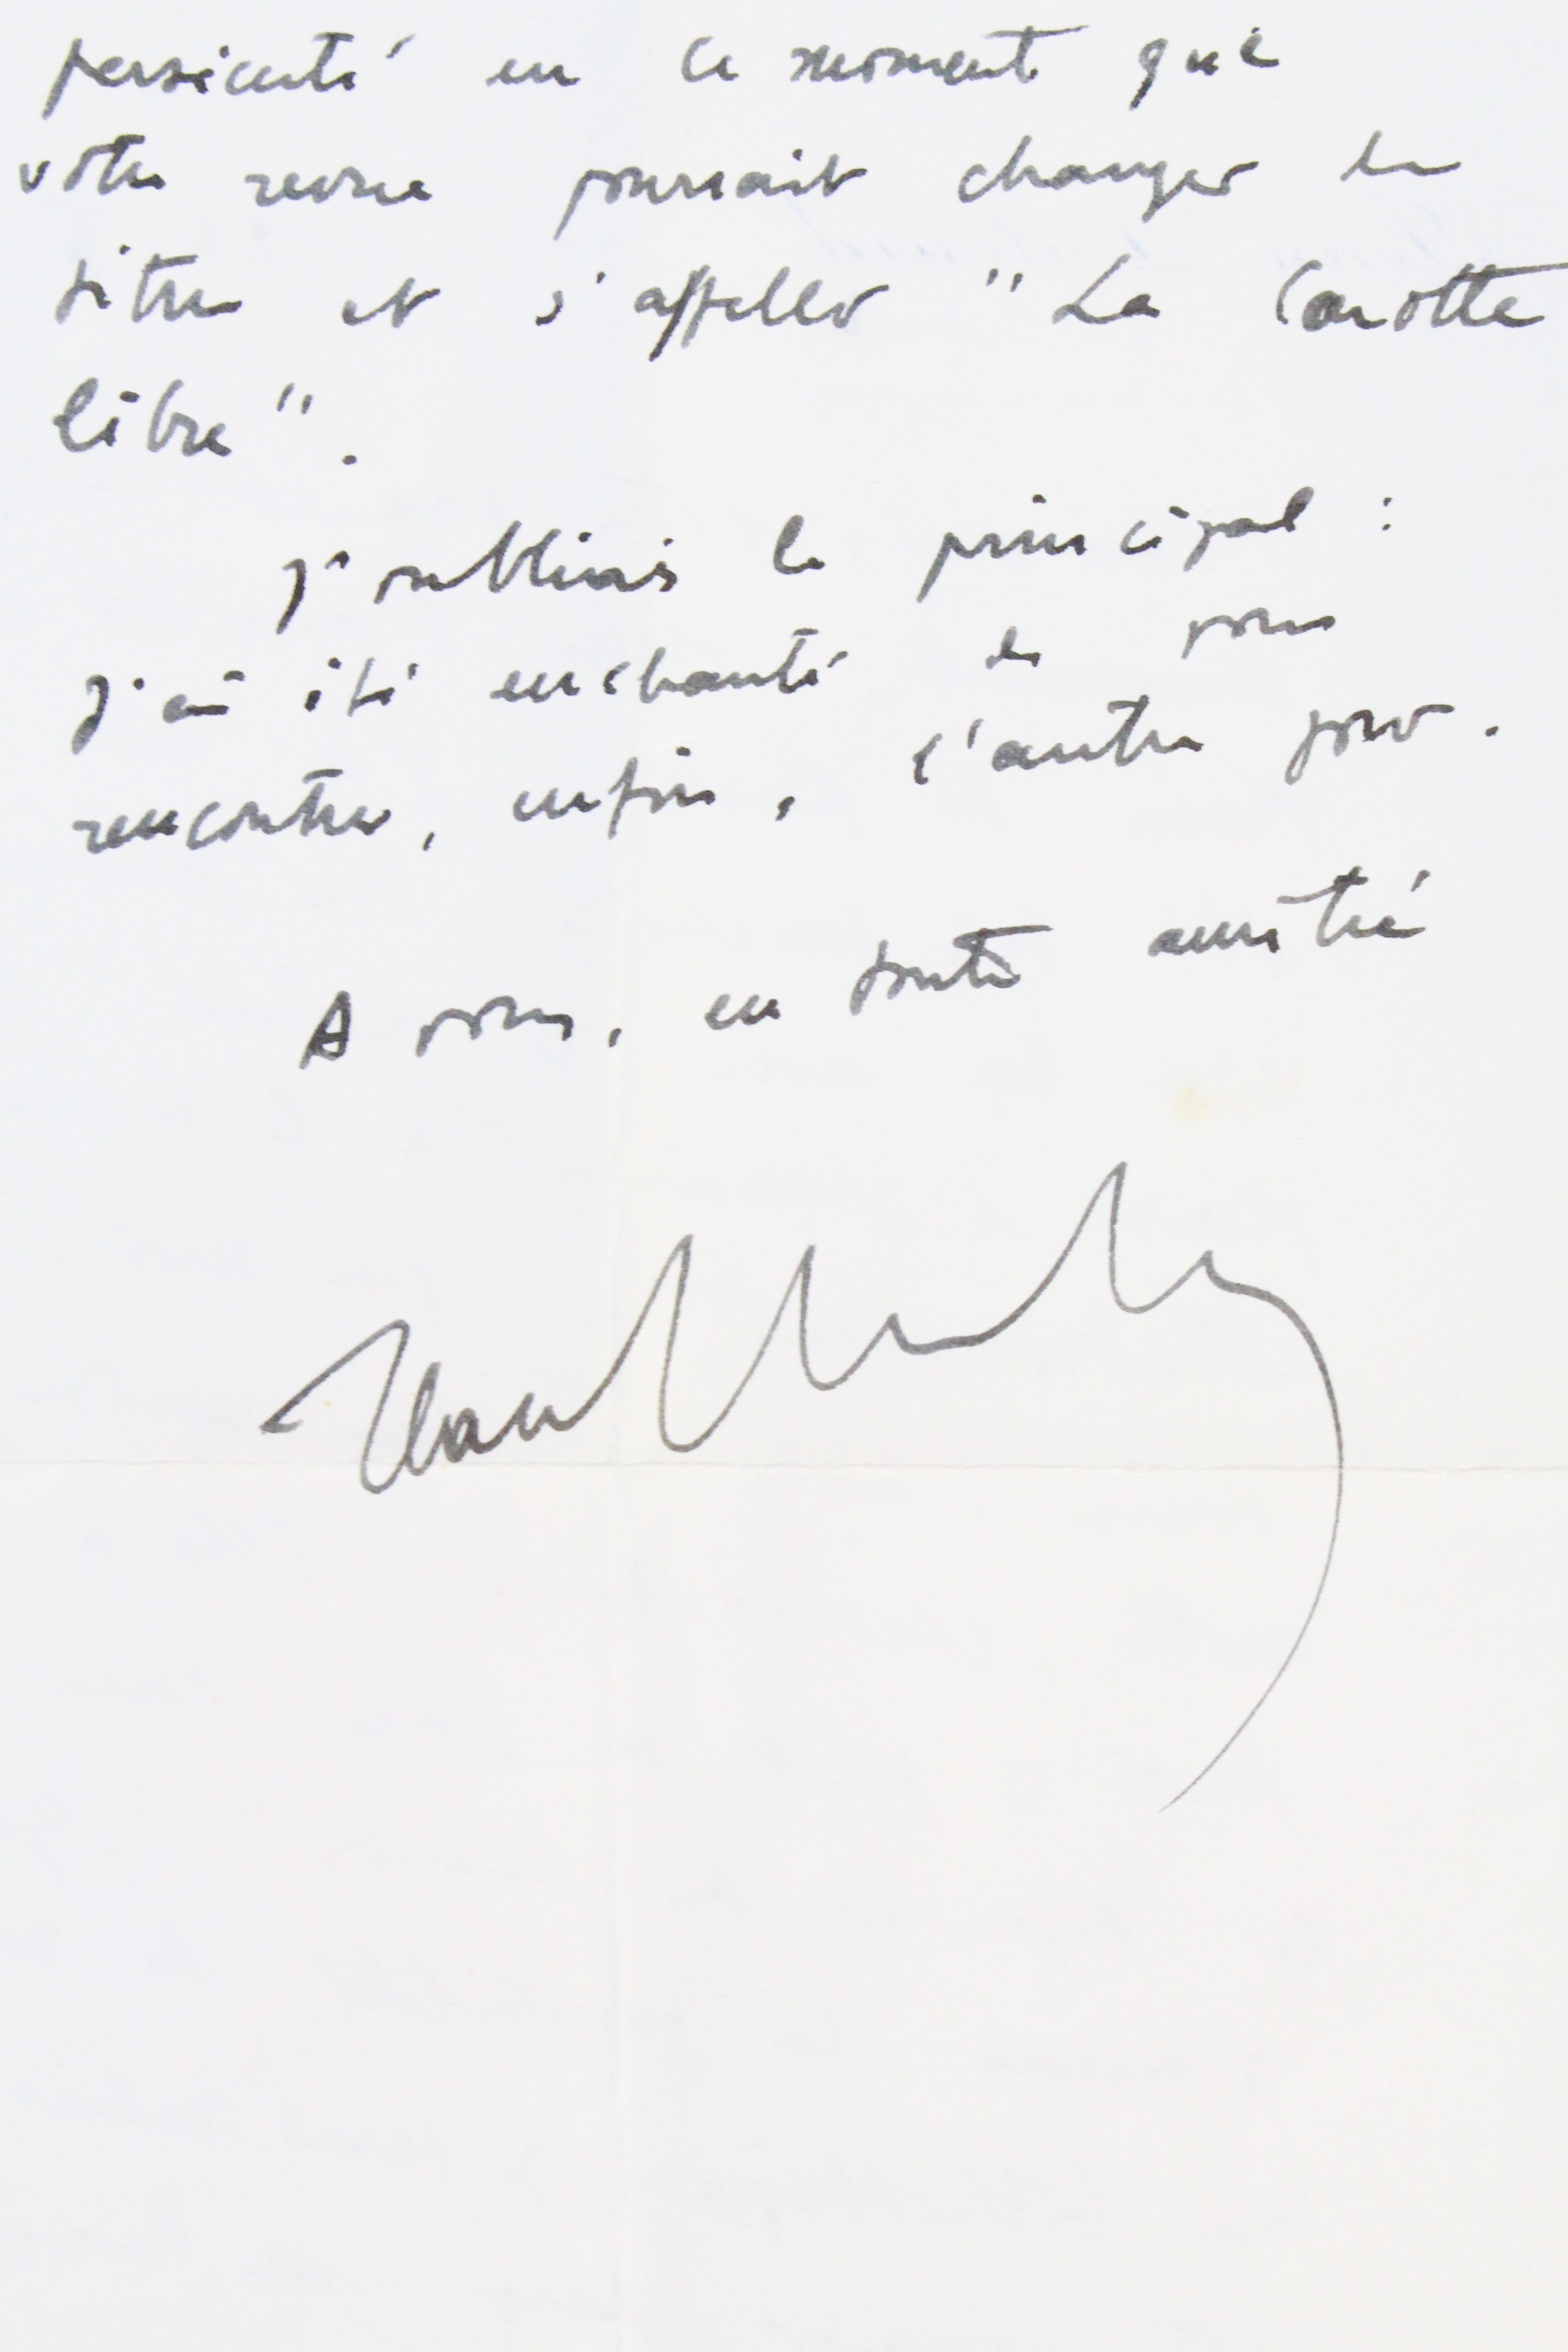 persécuté en ce moment que
votre revue pourrait changer de
titre et s'appeller "La Carotte
libre".
J'oubliais le principal :
J'ai été enchanté de vous
rencontrer, enfin, l'autre jour.
A vous, en toute amitié